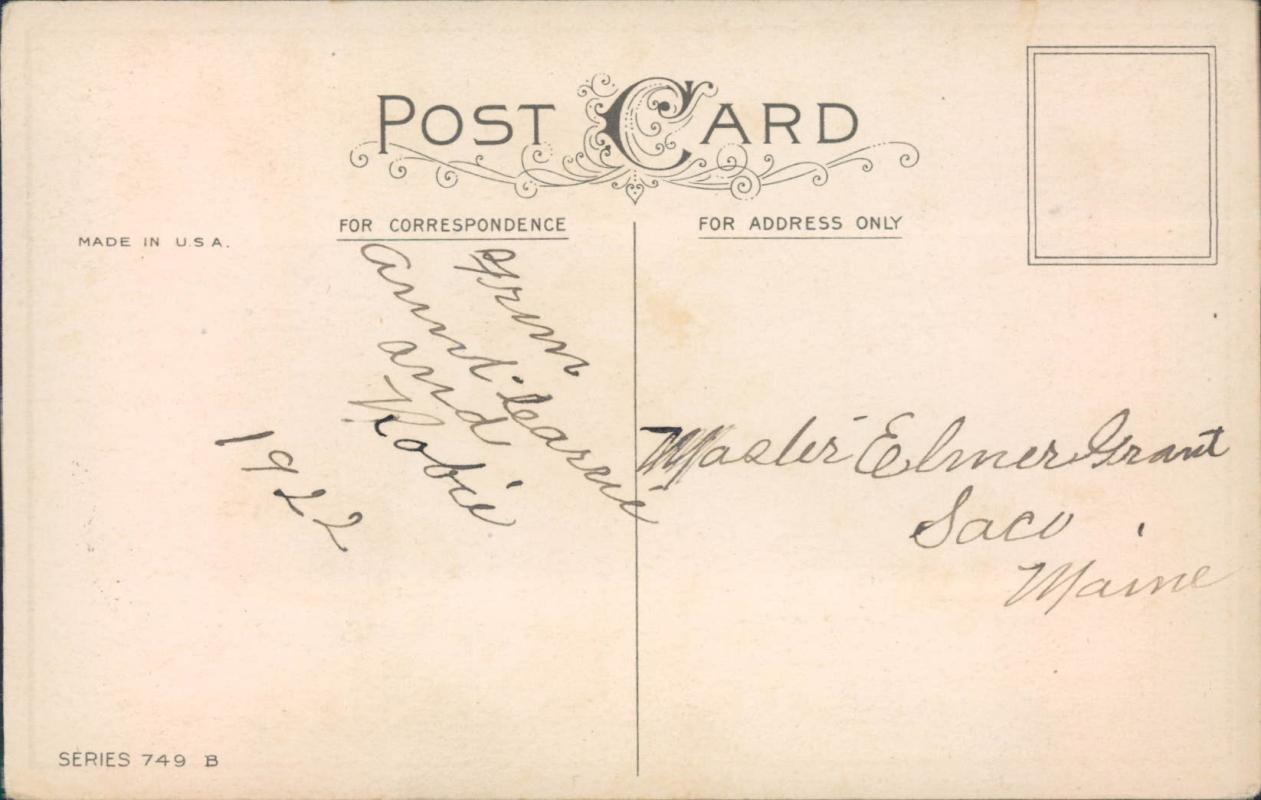 POST CARD
FOR CORRESPONDENCE
FOR ADDRESS ONLY
MADE IN U.S.A.
From
Aunt
and
Robie
1922
Master Elmer Grant
Saco
Maine
SERIES 749 B